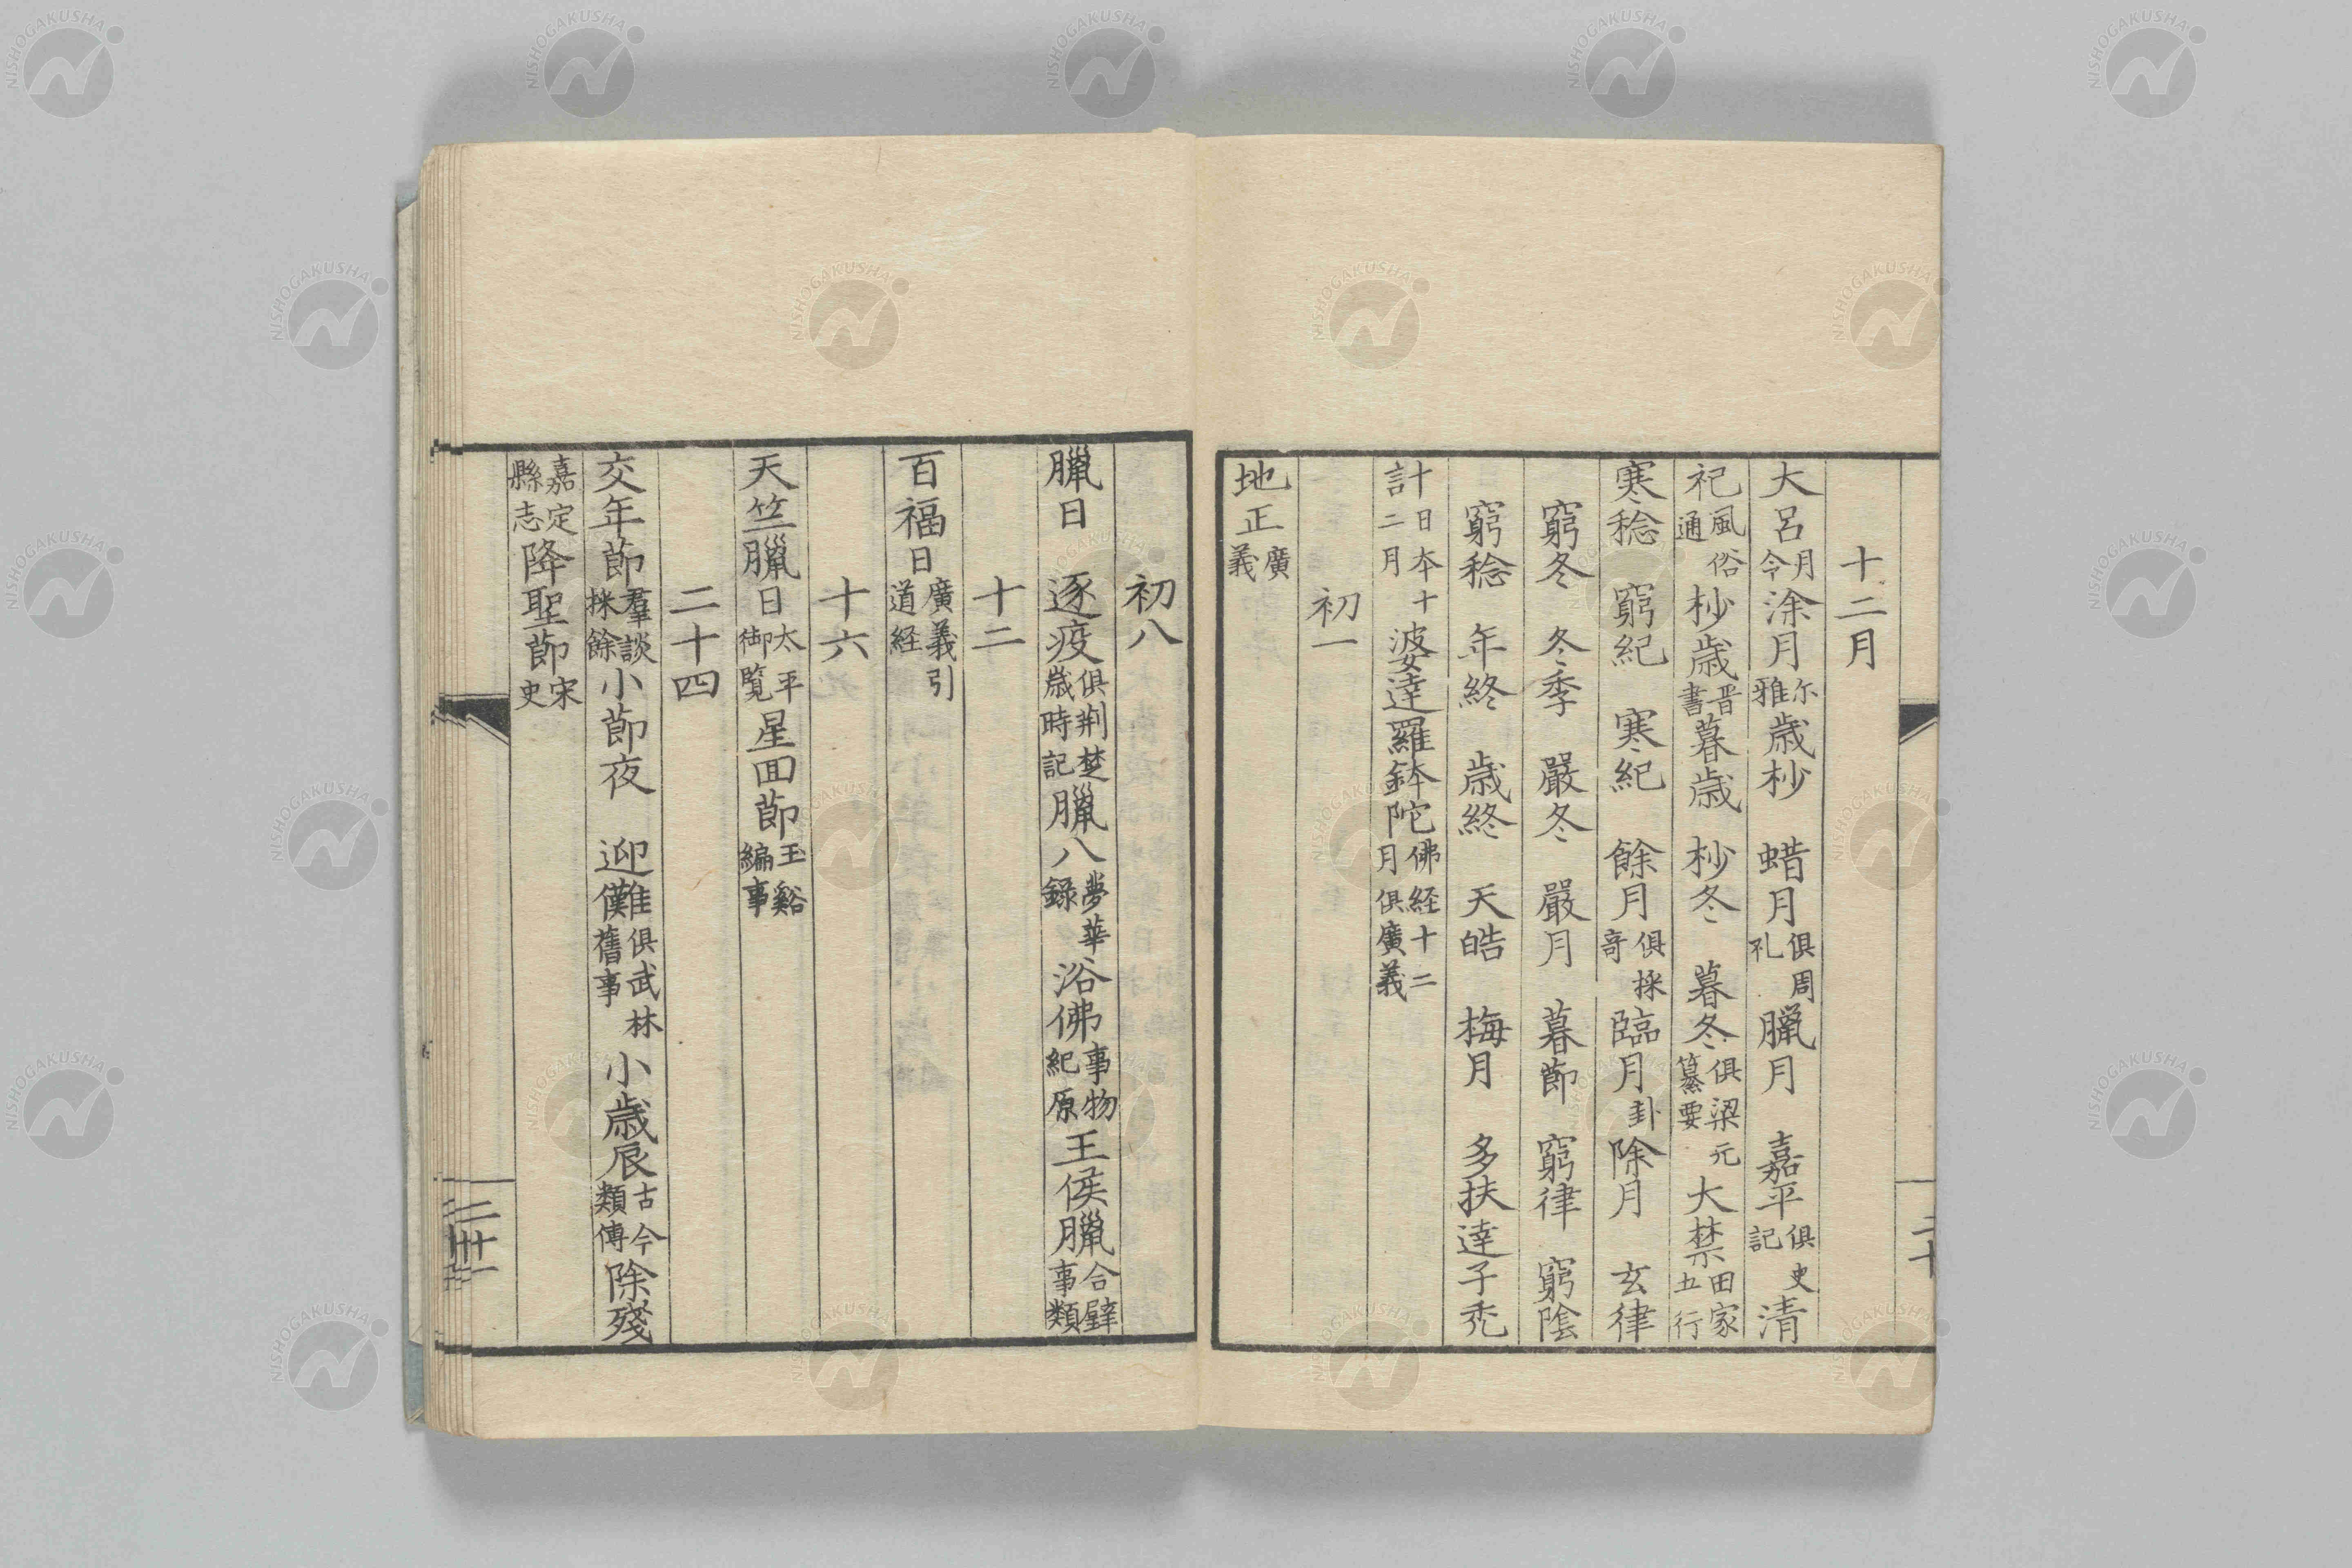 十二月
大呂月令涂月尔雅歲杪 蜡月俱周礼臘月 嘉平俱史記清
祀風俗通杪歳晋書暮歳 杪冬 暮冬俱梁元纂要大禁田家五行
寒稔 窮紀 寒紀 餘月俱採奇臨月卦除月 玄律
窮冬 冬季 嚴冬 嚴月 暮節 窮律 窮陰
窮稔 年終 歳終 天皓 梅月 多扶達子禿
計日本十二月婆達羅鉢陀佛経十二月俱廣義
初一
地正廣義
初八
臘日 逐疫俱荆楚歳時記臘八夢華錄浴佛事物紀原王侯臘合璧事類
十二
百福日廣義引道経
十六
天竺臘日太平御覧星回節玉谿編事
二十四
交年節羣談採餘小節夜 迎儺俱武林舊事 小歳辰古今類傳除殘
嘉定縣志降聖節宋史
二十
二十一
NISHOGAKUSHA